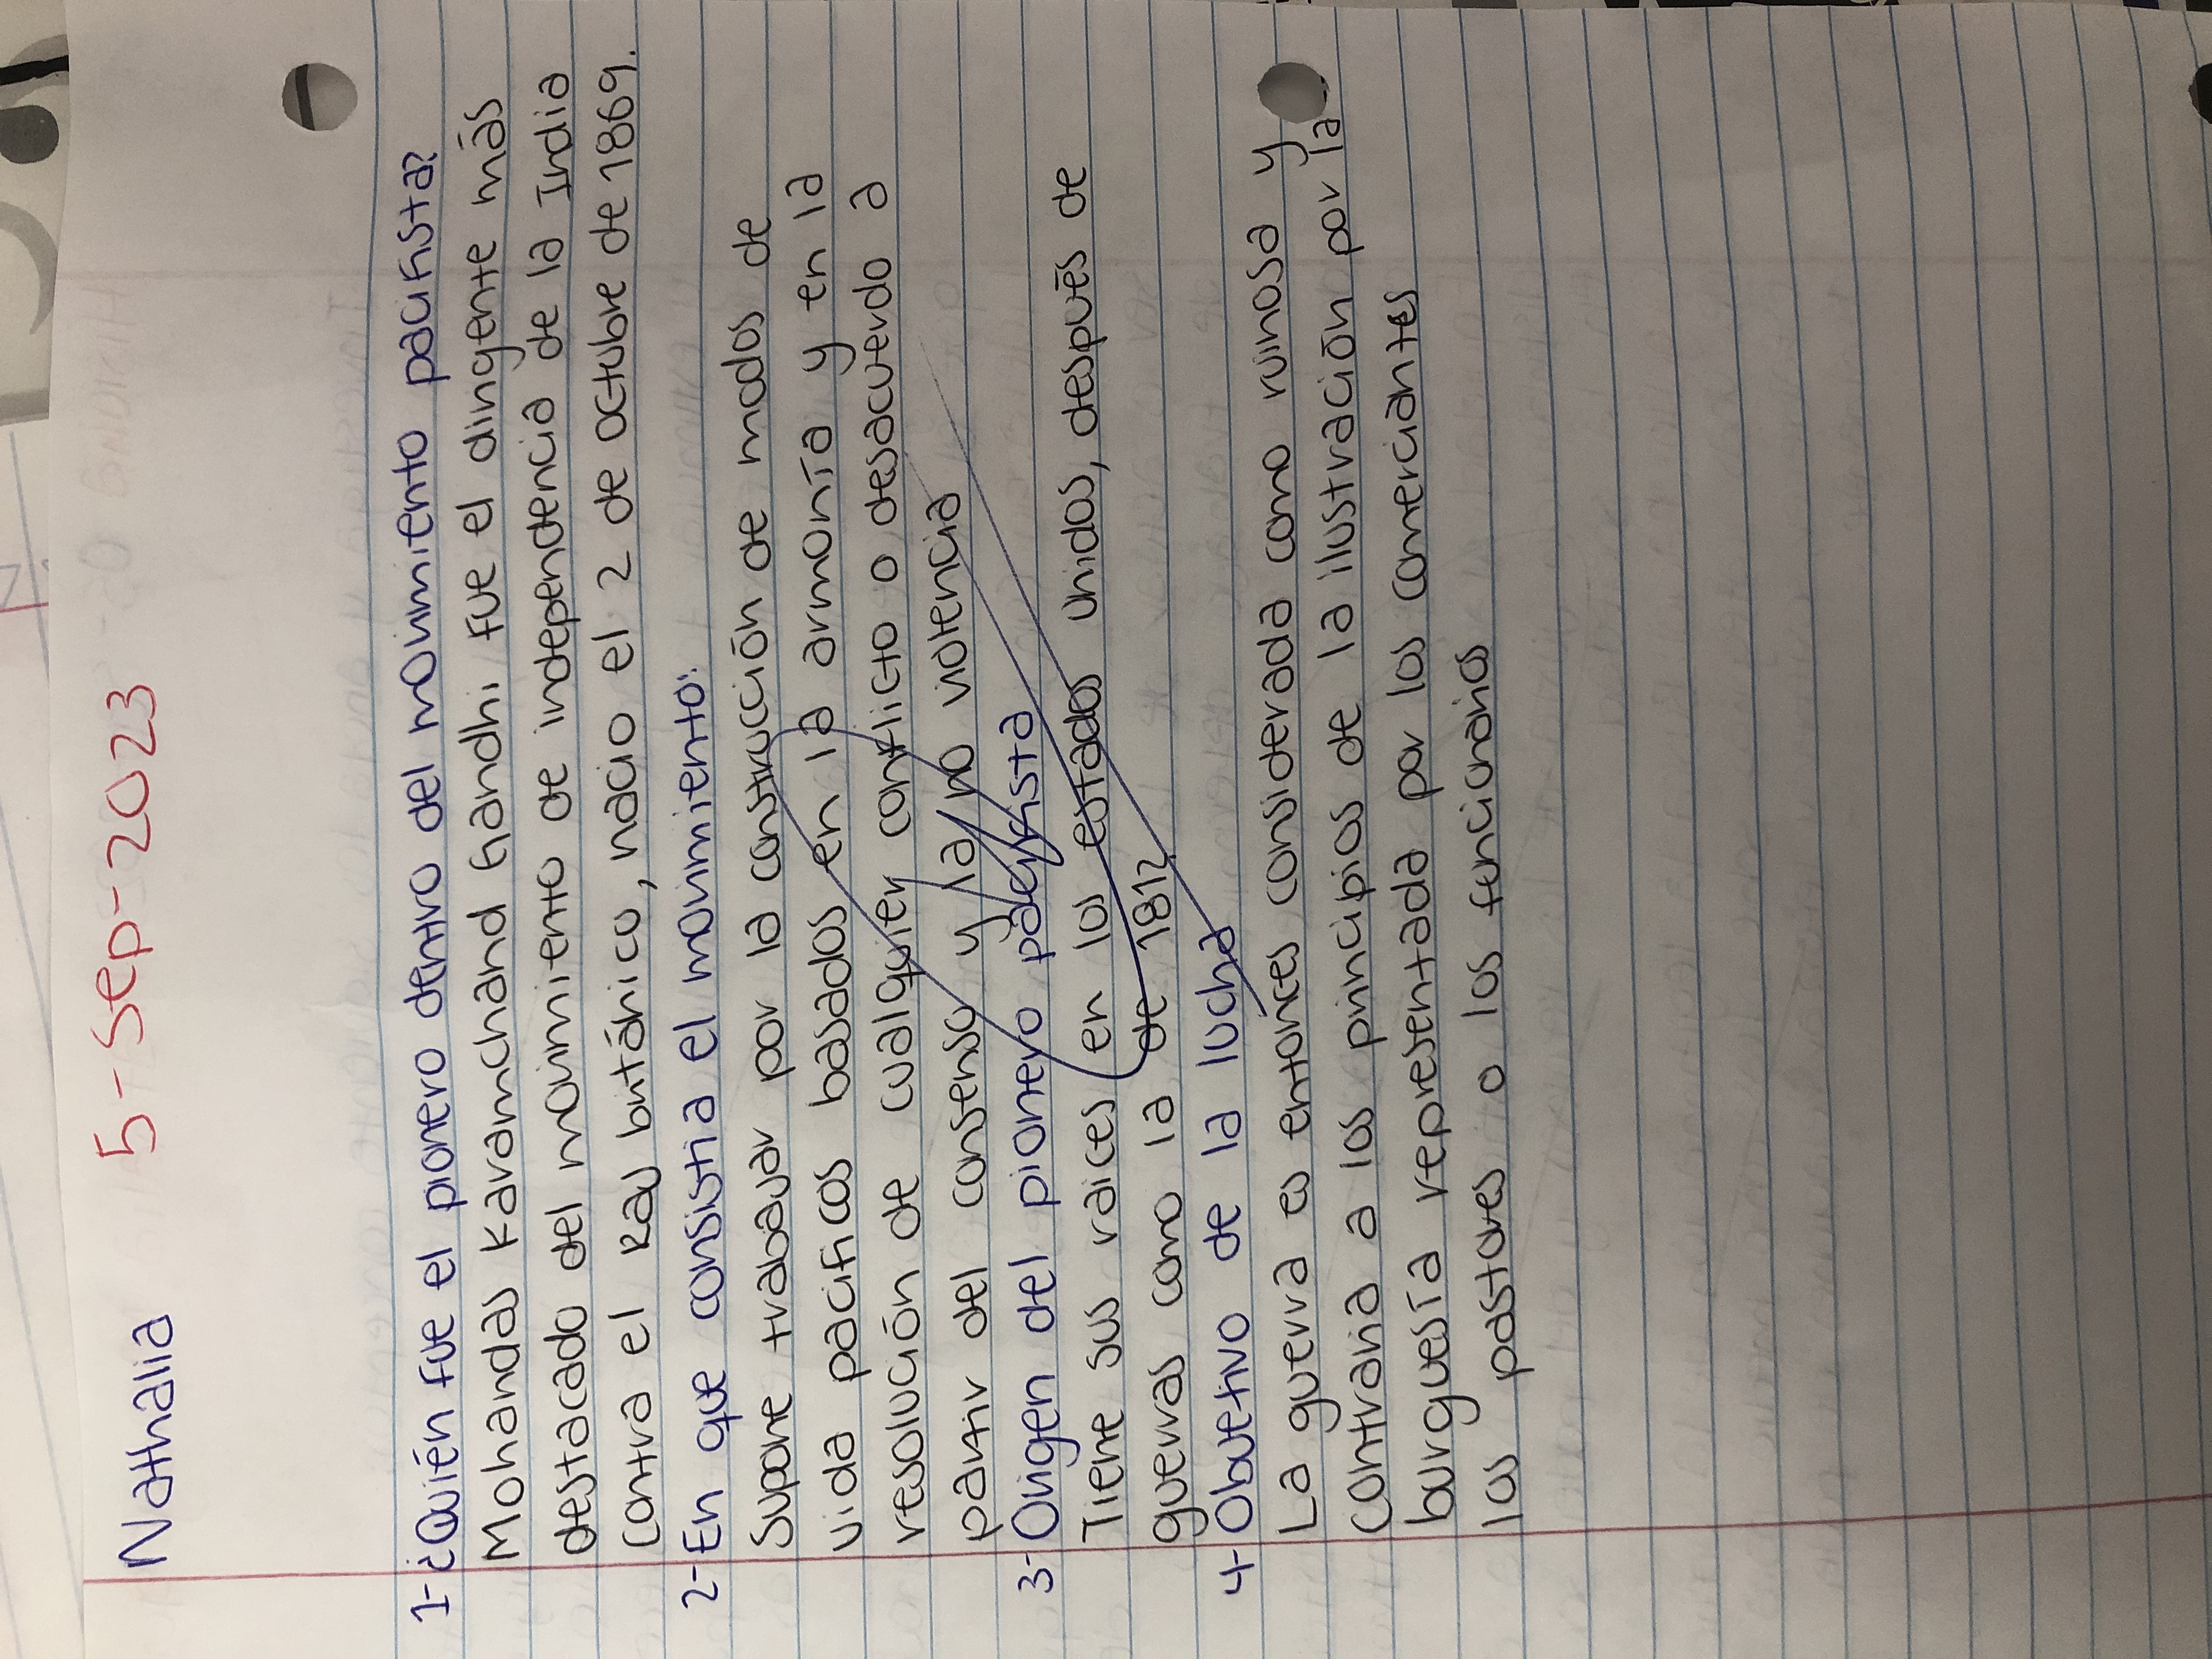 Nathalia 5-Sep-2023
1-¿Quién fue el pionero dentro del movimiento pacifista?
Mohandas Karamchand Gandhi fue el dirigente más
destacado del movimiento de independencia de la India
contra el Raj británico, nacio el 2 de octubre de 1869.
2-En que consistia el movimiento:
Supone trabajar por la construcción de modos de
vida pacificos basados en la armonía y en la
resolución de cualquier conflicto o desacuerdo a
partir del consenso y la no violencia
3-Origen del pionero pacifista
Tiene sus raices en los estados unidos, después de
guerras como la de 1812
4-Objetivo de la lucha
La guerra es entonces considerada como ruinosa y
contraria a los principios de la ilustración por la
burguesía representada por los comerciantes
los pastores o los funcionarios